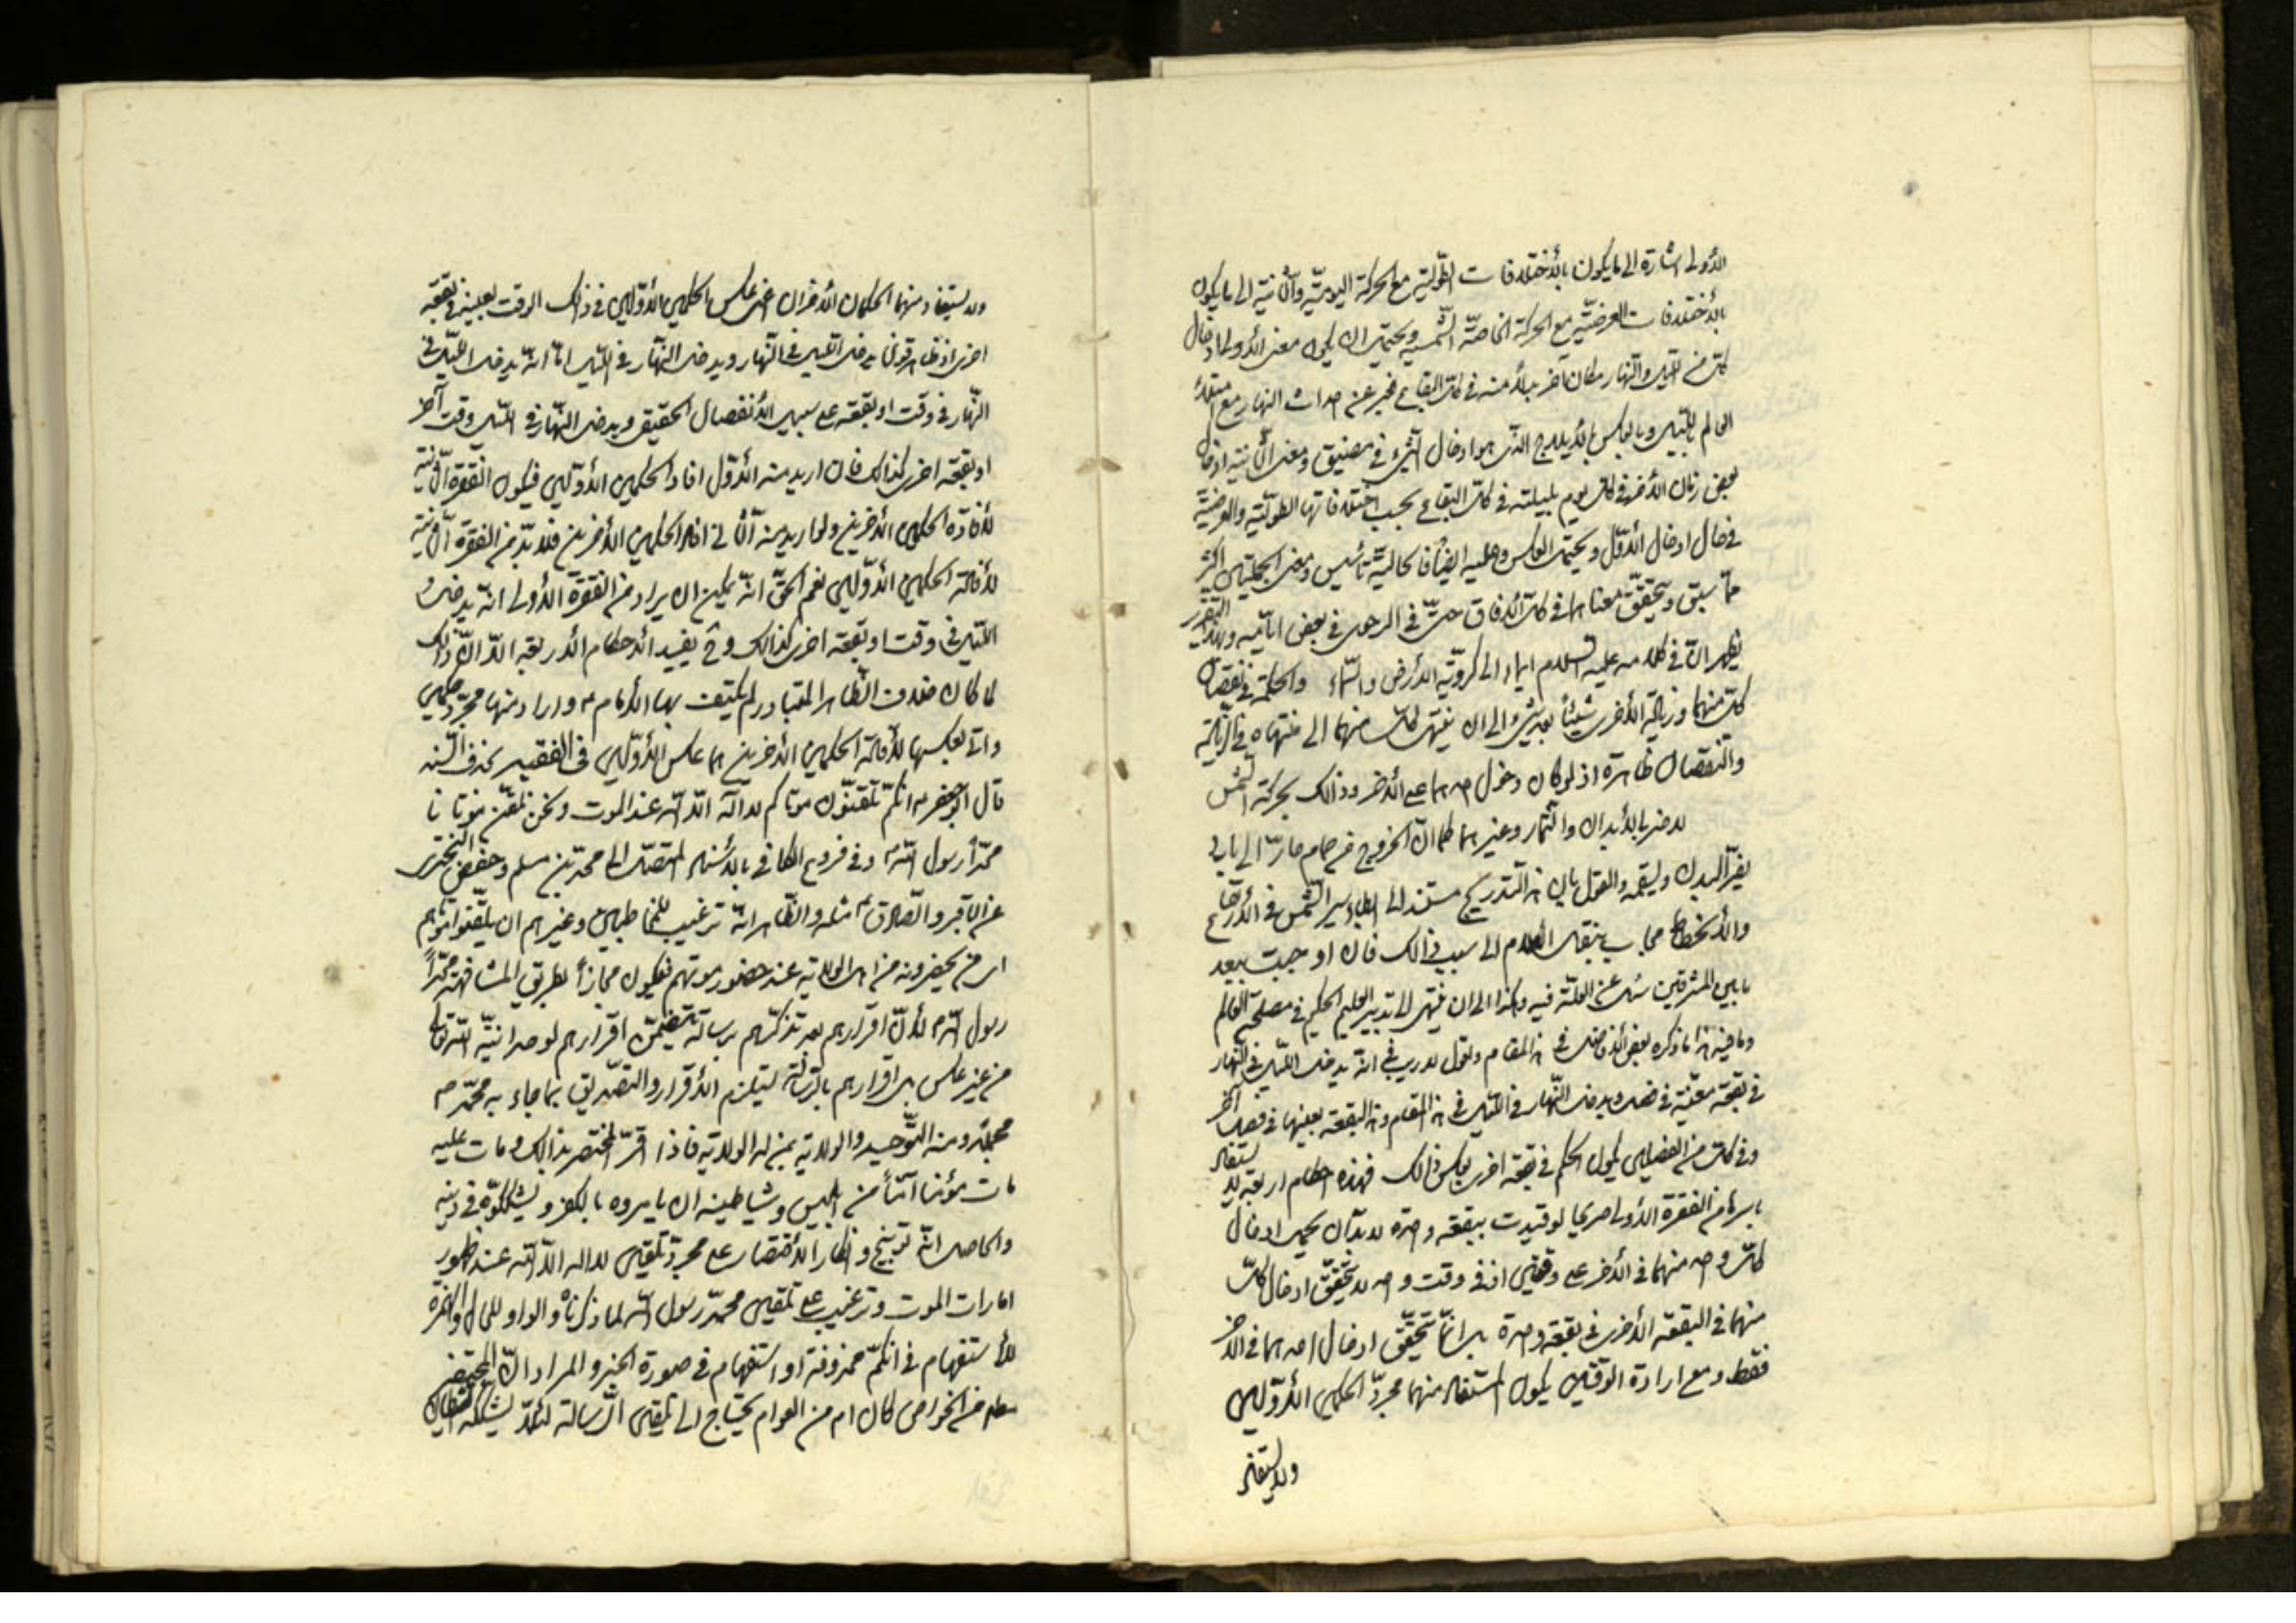 الأولى اشارة الى ما يكون بالأختلافات الطولية مع الحركة اليومية والثانية الى ما يكون
بالأختلافات العرضية مع الحركة الخاصة الشمسية ويحتمل ان يكون معنى الأولى ادخال
كل من الليل والنهار مكان آخر بدلا منه في كل البقاع فخبر عن احداث النهار مع
العالم بالليل وبالعكس بالأيلاج الذي هو ادخال الشيء في مضيق ومعنى الثانية ادخال
بعض زمان الأخر في كل يوم بليلته في كل البقاع بحسب اختلافاتها الطولية والعرضية
في حال ادخال الأول ويحتمل العكس وعليه ايضا فالحالية تأسيس ومعنى الجملتين اكثر
مما سبق ويتحقق معناها في كل الأفاق حتى في الرحوى في بعض ايامه وبهذا التقرير
يظهر ان في كلامه عليه السلام ايماء الى كروية الأرض والسماء والحكمة في نقصان
كل منهما وزيادة الأخر شيئا بعد شيء الى ان ينتهى كل منهما الى منتهاه في الزيادة
والنقصان ظاهرة اذ لو كان دخول احدهما على الأخر وذلك بحركة الشمس
لاضر بالأبدان والثمار وغيرهما كما ان الخروج من حمام حار الى بارد
يضر البدن ويسقمه والقول بان هذا التدريج مستند الى ابطاء سير الشمس في الأرتفاع
والأنحطاط مجاب بنقل الكلام الى سبب ذلك فان اوجبت ببعد
ما بين المشرقين سئل عن العلة فيه وهكذا الى ان ينتهى الى تدبير العليم الحكيم في مصلحة العالم
وما فيه هذا ما ذكره بعض الأفاضل في هذا المقام ونقول لا ريب في انه يدخل الليل في النهار
في بقعة معينة في فصل ويدخل النهار في الليل في هذا المقام وهذه البقعة بعينها في فصل آخر
وفي كل من الفصلين يكون الحكم في بقعة اخرى بعكس ذلك فهذه احكام اربعة لا يستفاد
باسرها من الفقرة الأولى صريحا لو قيدت ببقعة واحدة لا بد ان يحمل ادخال
كل واحد منهما في الأخر على وقتين اذ في وقت واحد لا يتحقق ادخال كل
منهما في البقعة الأخرى في بقعة واحدة بل انما يتحقق ادخال احدهما في الأخر
فقط ومع ارادة الوقتين يكون المستفاد منهما مجرد الحكمين الأولين
ولا يستفاد
ولا يستفاد منهما الحكمان الأخران اعنى عكس الحكمين الأولين في ذلك الوقت بعينه في بقعة
اخرى اذ ظاهر قولنا يدخل الليل في النهار ويدخل النهار في الليل اما انه يدخل الليل في
النهار في وقت او بقعة على سبيل الأنفصال الحقيقى ويدخل النهار في الليل وقت آخر
او بقعة اخرى كذلك فان اريد منه الأول افاد الحكمين الأولين فيكون الفقرة الثانية
لأفادة الحكمين الأخرين ولو اريد منه الثانى افاد الحكمين الأخرين فلا بد من الفقرة الثانية
لأفادة الحكمين الأولين نعم الحق انه يمكن ان يراد من الفقرة الأولى انه يدخل
الليل في وقت او بقعة اخرى كذلك وح يفيد الأحكام الأربعة الا ان ذلك
لما كان خلاف الظاهر المتبادر لم يكتف بها الأمام ع واراد منها مجرد حكمين
واتى بعكسها لأفادة الحكمين الأخرين هما عكس الأولين في الفقيه بحذف السند
قال ابو جعفر ع انكم تلقنون موتاكم لا اله الا الله عند الموت ونحن نلقن موتانا
محمدا رسول الله ص وفي فروع الكافي بالأسناد المتصل الى محمد بن مسلم وحفص البخترى
عن الباقر والصادق ع مثله والظاهر انه ترغيب للمخاطبين وغيرهم ان يلقنوا موتاهم
اى من يحضرونه من اهل الولاية عند حضور موتهم فيكون مجازا بطريق المشافهة محمدا
رسول الله ص لأن اقرارهم بعد تذكرهم برسالته يتضمن اقرارهم لوحدانية الله تعالى
من غير عكس بل اقرارهم بالرسالة يستلزم الأقرار والتصديق بما جاء به محمد ص
مجملا ومنه التوحيد والولاية بمن له الولاية فاذا اقر المحتضر بذلك ومات عليه
مات مؤمنا آمنا من ابليس وشياطينه ان يأمروه بالكفر ويشككوه في دينه
والحاصل انه توبيخ وانكار الأقتصار على مجرد تلقين لا اله الا الله عند ظهور
امارات الموت وترغيب على تلقين محمد رسول الله لما ذكرناه والواو للحال والهمزة
للأستفهام في انكم محذوفة او استفهام في صورة الخبر والمراد ان المحتضر
سواء من الخواص كان ام من العوام يحتاج الى تلقين الرسالة لئلا يشككه الشيطان